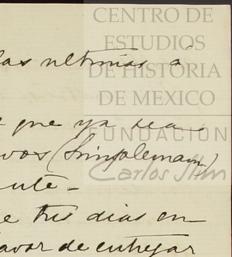 CENTRO DE
ESTUDIOS
DE HISTORIA
DE MEXICO
FUNDACIÓN
Carlos Slim
las ultimas á
que ya sea
vos (Simpleman)
nte-
e tres dias en-
avor de entregar